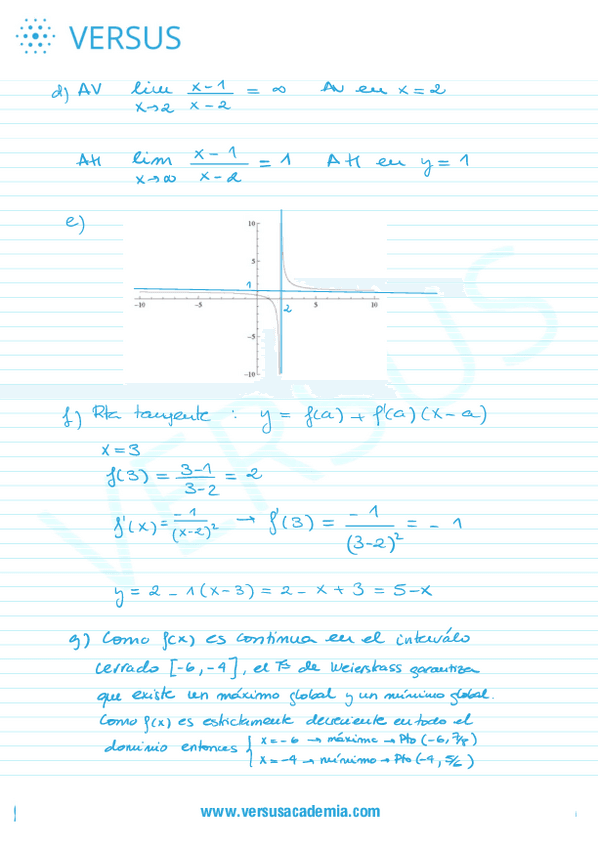 VERSUS
d) AV lim x→2 x-1/x-2 = ∞ AV en x = 2
AH lim x→∞ x-1/x-2 = 1 AH en y = 1
e)
10
5
1
-10 -5 5 10
2
-5
-10
f) Rta tangente : y = f(a) + f'(a)(x-a)
x = 3
f(3) = 3-1/3-2 = 2
f'(x) = -1/(x-2)² → f'(3) = -1/(3-2)² = -1
y = 2 - 1(x-3) = 2 - x + 3 = 5-x
g) Como f(x) es continua en el interválo
cerrado [-6, -4], el Tª de Weierstass garantiza
que existe un máximo global y un mínimo global.
Como f(x) es estrictamente decreciente en todo el
dominio entonces { x = -6 → máximo → Pto (-6, 7/8)
x = -4 → mínimo → Pto (-4, 5/6)
www.versusacademia.com